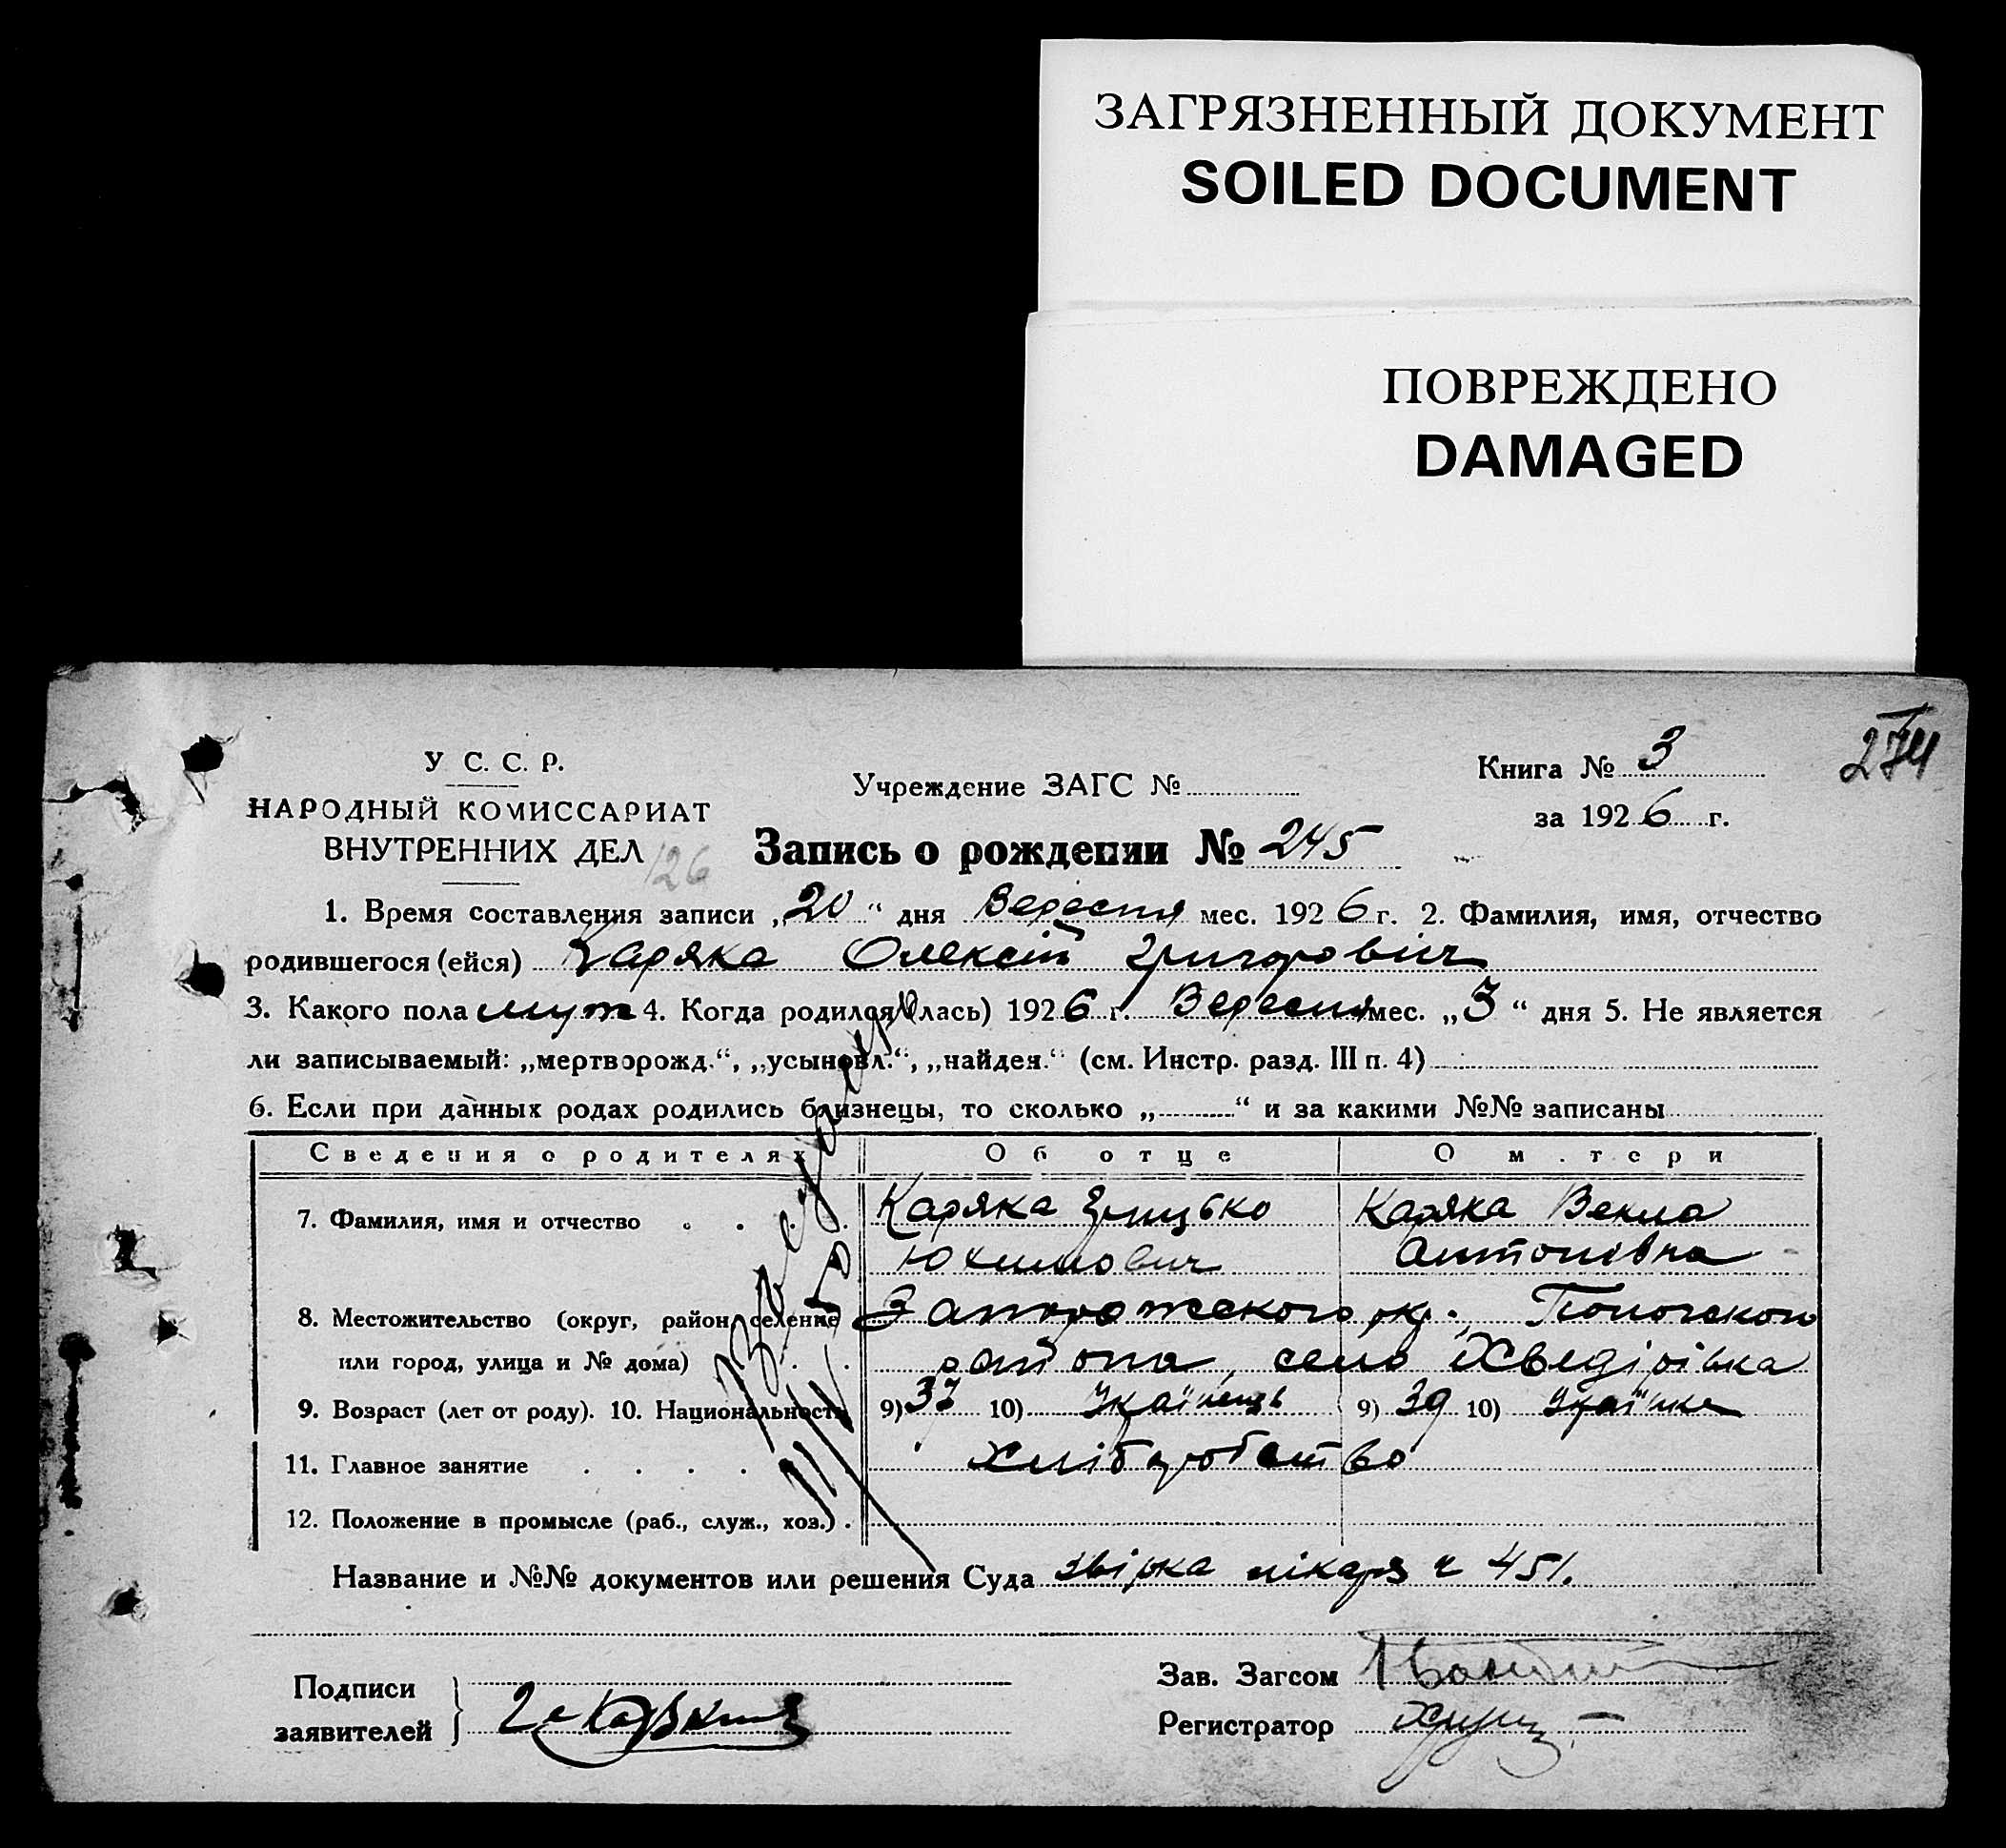 ЗАГРЯЗНЕННЫЙ ДОКУМЕНТ
SOILED DOCUMENT
ПОВРЕЖДЕНО
DAMAGED
274
У С. С. Р.
НАРОДНЫЙ КОМИССАРИАТ
ВНУТРЕННИХ ДЕЛ
126
Учреждение ЗАГС №
Книга № 3
за 1926 г.
Запись о рождении № 245
1. Время составления записи „20“ дня Вересня мес. 1926 г. 2. Фамилия, имя, отчество
родившегося (ейся) Каряка Олексій Григорович
3. Какого пола муж 4. Когда родился (лась) 1926 г. Вересня мес. „3“ дня 5. Не является
ли записываемый: „мертворожд.“, „усыновл.“, „найден.“ (см. Инстр. разд. III п. 4)
6. Если при данных родах родились близнецы, то сколько „ “ и за какими №№ записаны
Сведения о родителях Об отце О м.тери
7. Фамилия, имя и отчество Каряка Грицько Каряка Векла
Юхимович Антонівна
8. Местожительство (округ, район, селение Запорожского окр. Пологского
или город, улица и № дома) району село Хведірівка
9. Возраст (лет от роду). 10. Национальность 9) 37 10) Українець 9) 39 10) Українка
11. Главное занятие Хліборобство
12. Положение в промысле (раб., служ., хоз.)
Название и №№ документов или решения Суда звірка лікаря ч 451.
Подписи
заявителей
Зав. Загсом
Регистратор